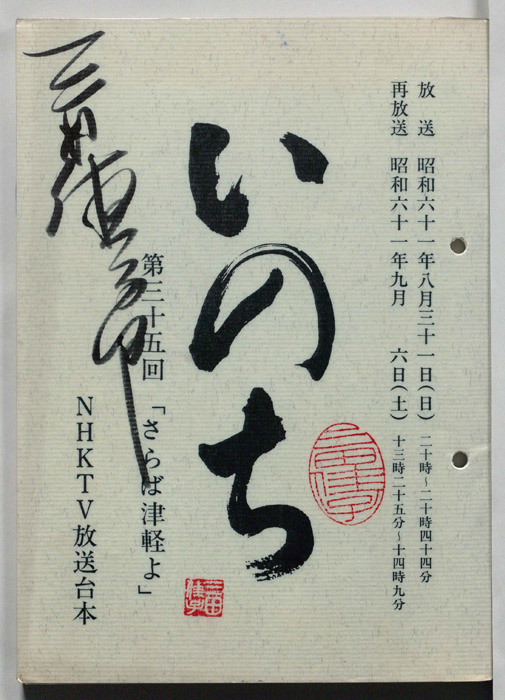 放送　昭和六十一年八月三十一日(日)二十時～二十時四十四分
再放送　昭和六十一年九月　六日(土)十三時二十五分～十四時九分
いのち
第三十五回　「さらば津軽よ」
NHKTV放送台本